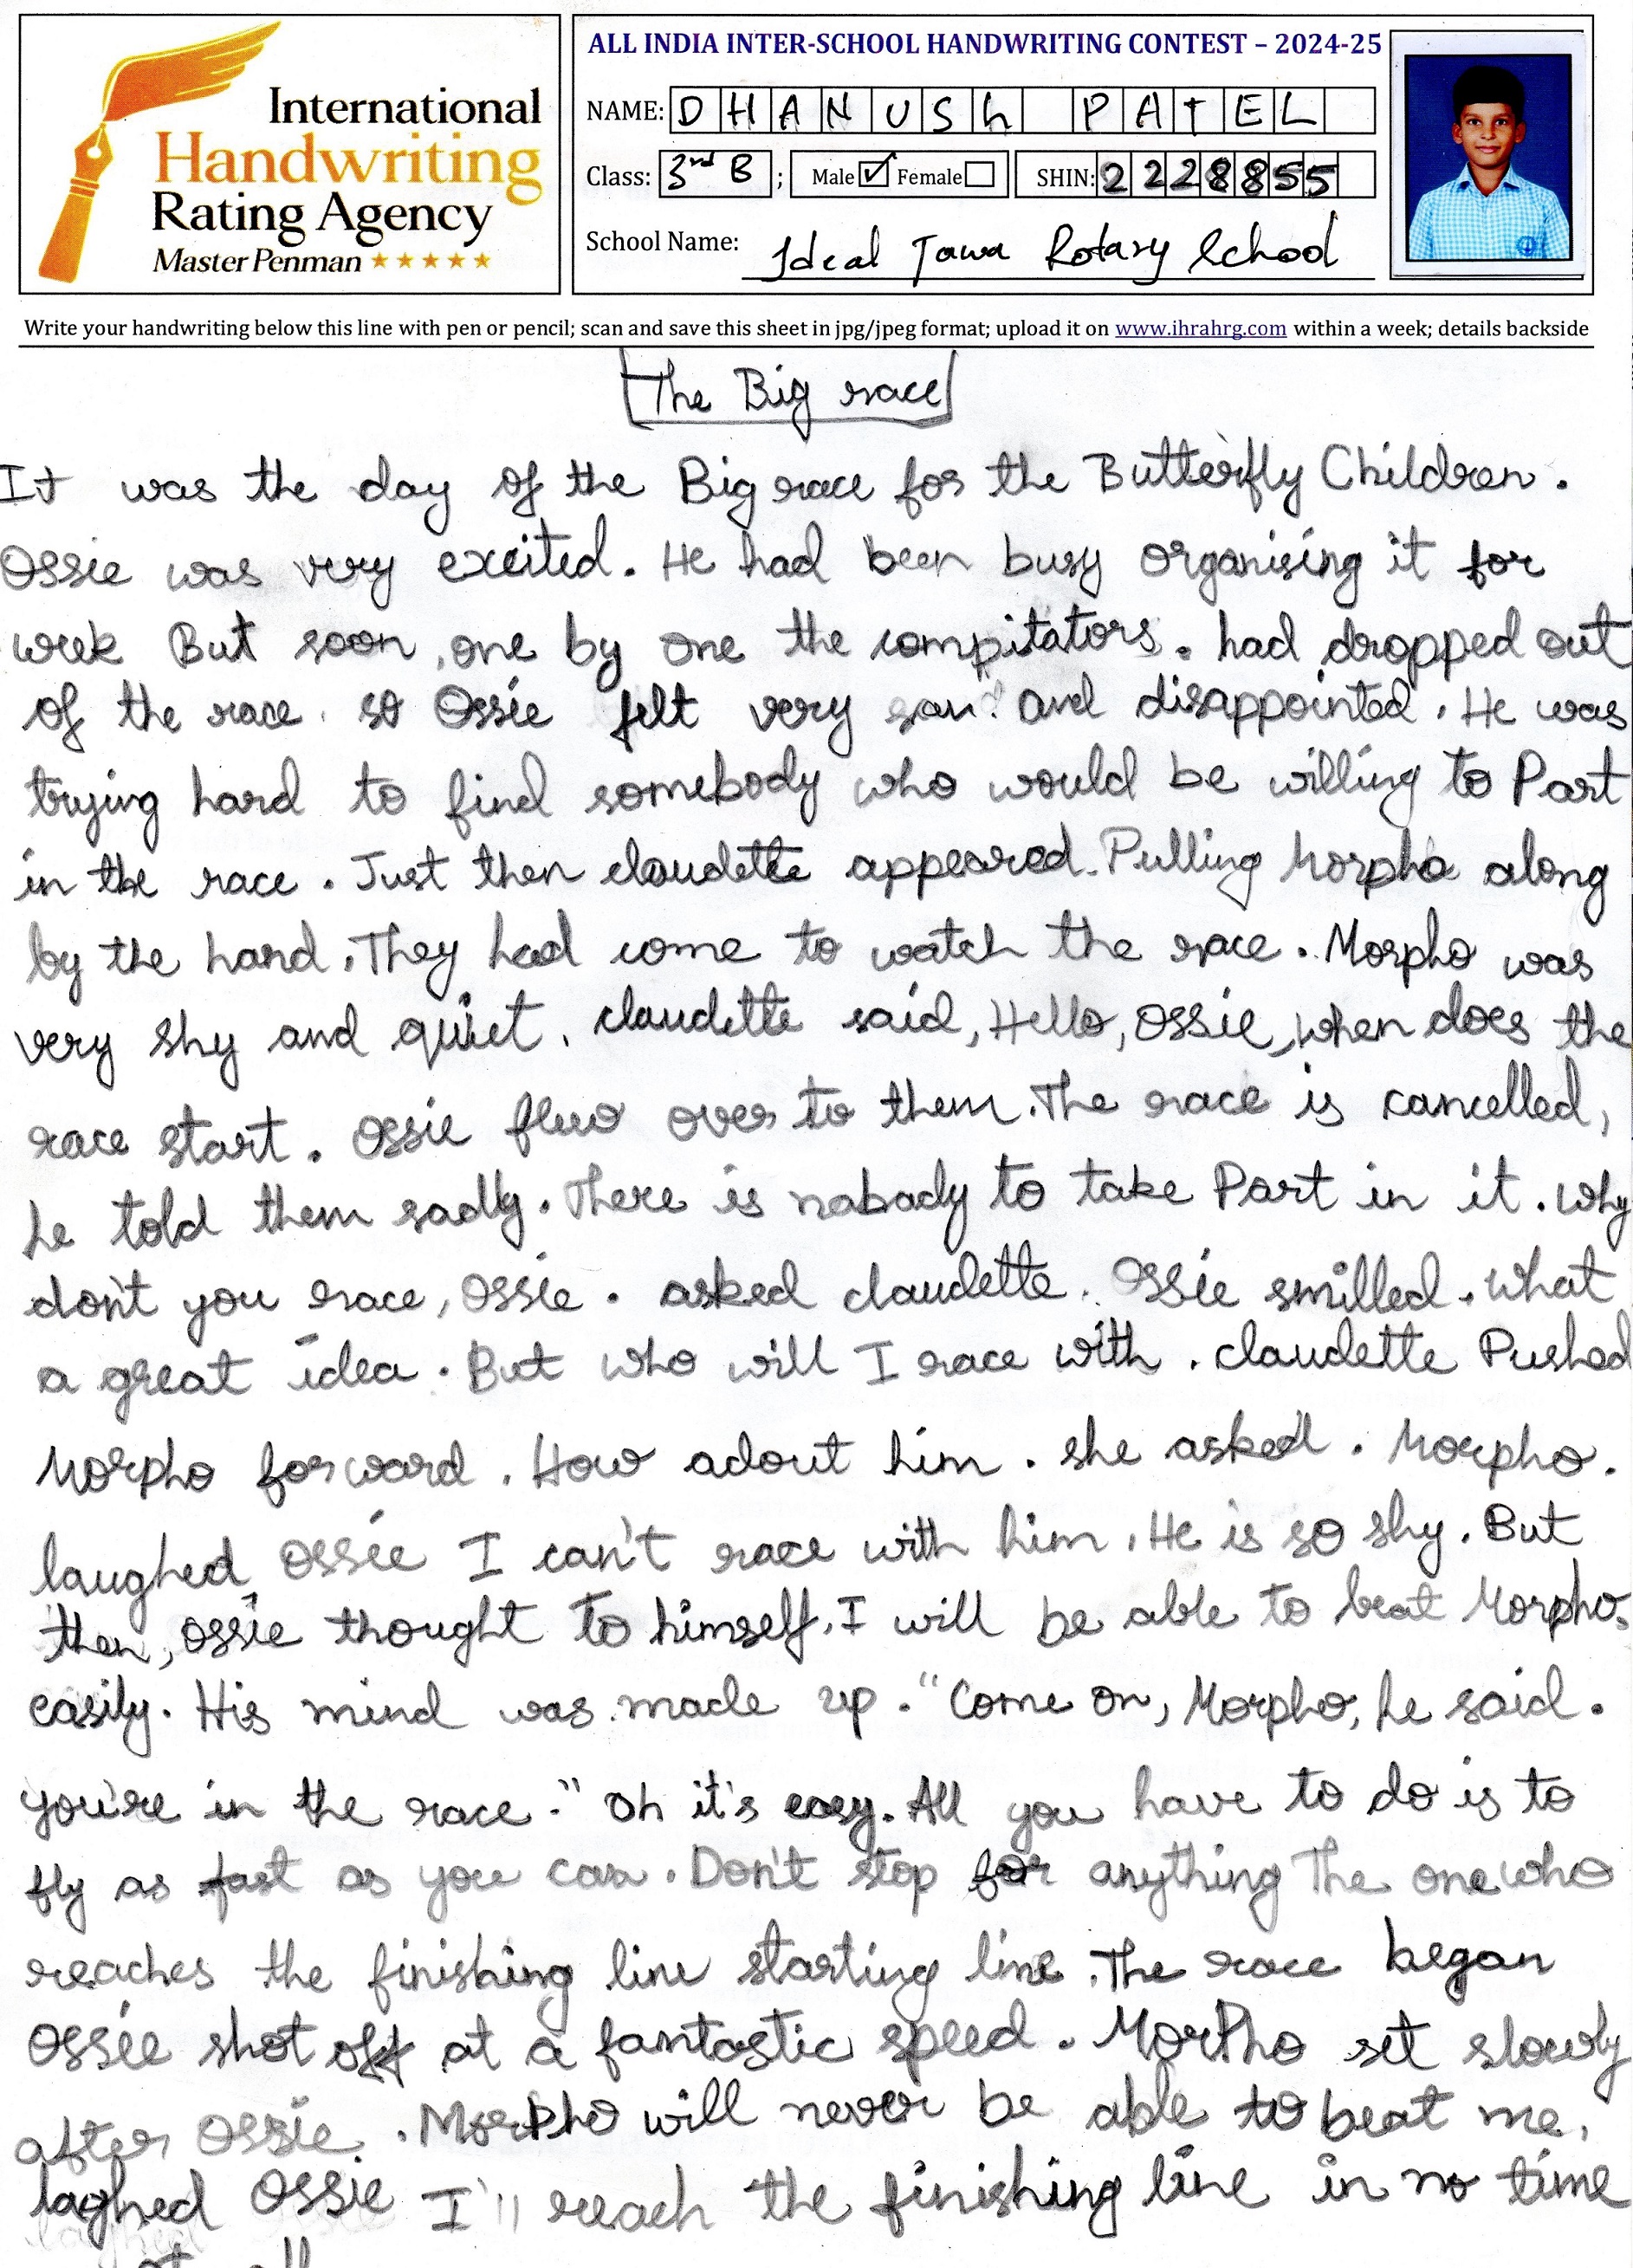 International
Handwriting
Rating Agency
Master Penman
ALL INDIA INTER-SCHOOL HANDWRITING CONTEST – 2024-25
NAME: DHANUSh PATEL
Class: 3rd B ; Male Female SHIN: 2228855
School Name: Ideal Tawa Rotary School
Write your handwriting below this line with pen or pencil; scan and save this sheet in jpg/jpeg format; upload it on www.ihrahrg.com within a week; details backside
The Big race
It was the day of the Big race for the Butterfly Children.
Ossie was very excited. He had been busy organising it for
week But soon, one by one the compitators. had dropped out
of the race. so Ossie felt very and disappointed. He was
trying hard to find somebody who would be willing to Part
in the race. Just then claudette appeared. Pulling Morpho along
by the hand. They had come to watch the race. Morpho was
very shy and quiet. claudette said, Hello, Ossie, when does the
race start. Ossie flew over to them. The race is cancelled,
he told them sadly. There is nabady to take Part in it. why
don't you race, Ossie. asked claudette. Ossie smilled. what
a great idea. But who will I race with. claudette Pushed
Morpho forward. How adout him. she asked. Morpho.
laughed, Ossie I can't race with him. He is so shy. But
then, Ossie thought to himself. I will be able to beat Morpho.
easily. His mind was made up. "Come on, Morpho, he said.
you're in the race." Oh it's easy. All you have to do is to
fly as fast as you can. Don't stop for anything The one who
reaches the finishing line starting line. The race began
Ossie shot off at a fantastic speed. MorPho set slowly
after Ossie. Morpho will never be able to beat me,
laghed Ossie I'll reach the finishing line in no time